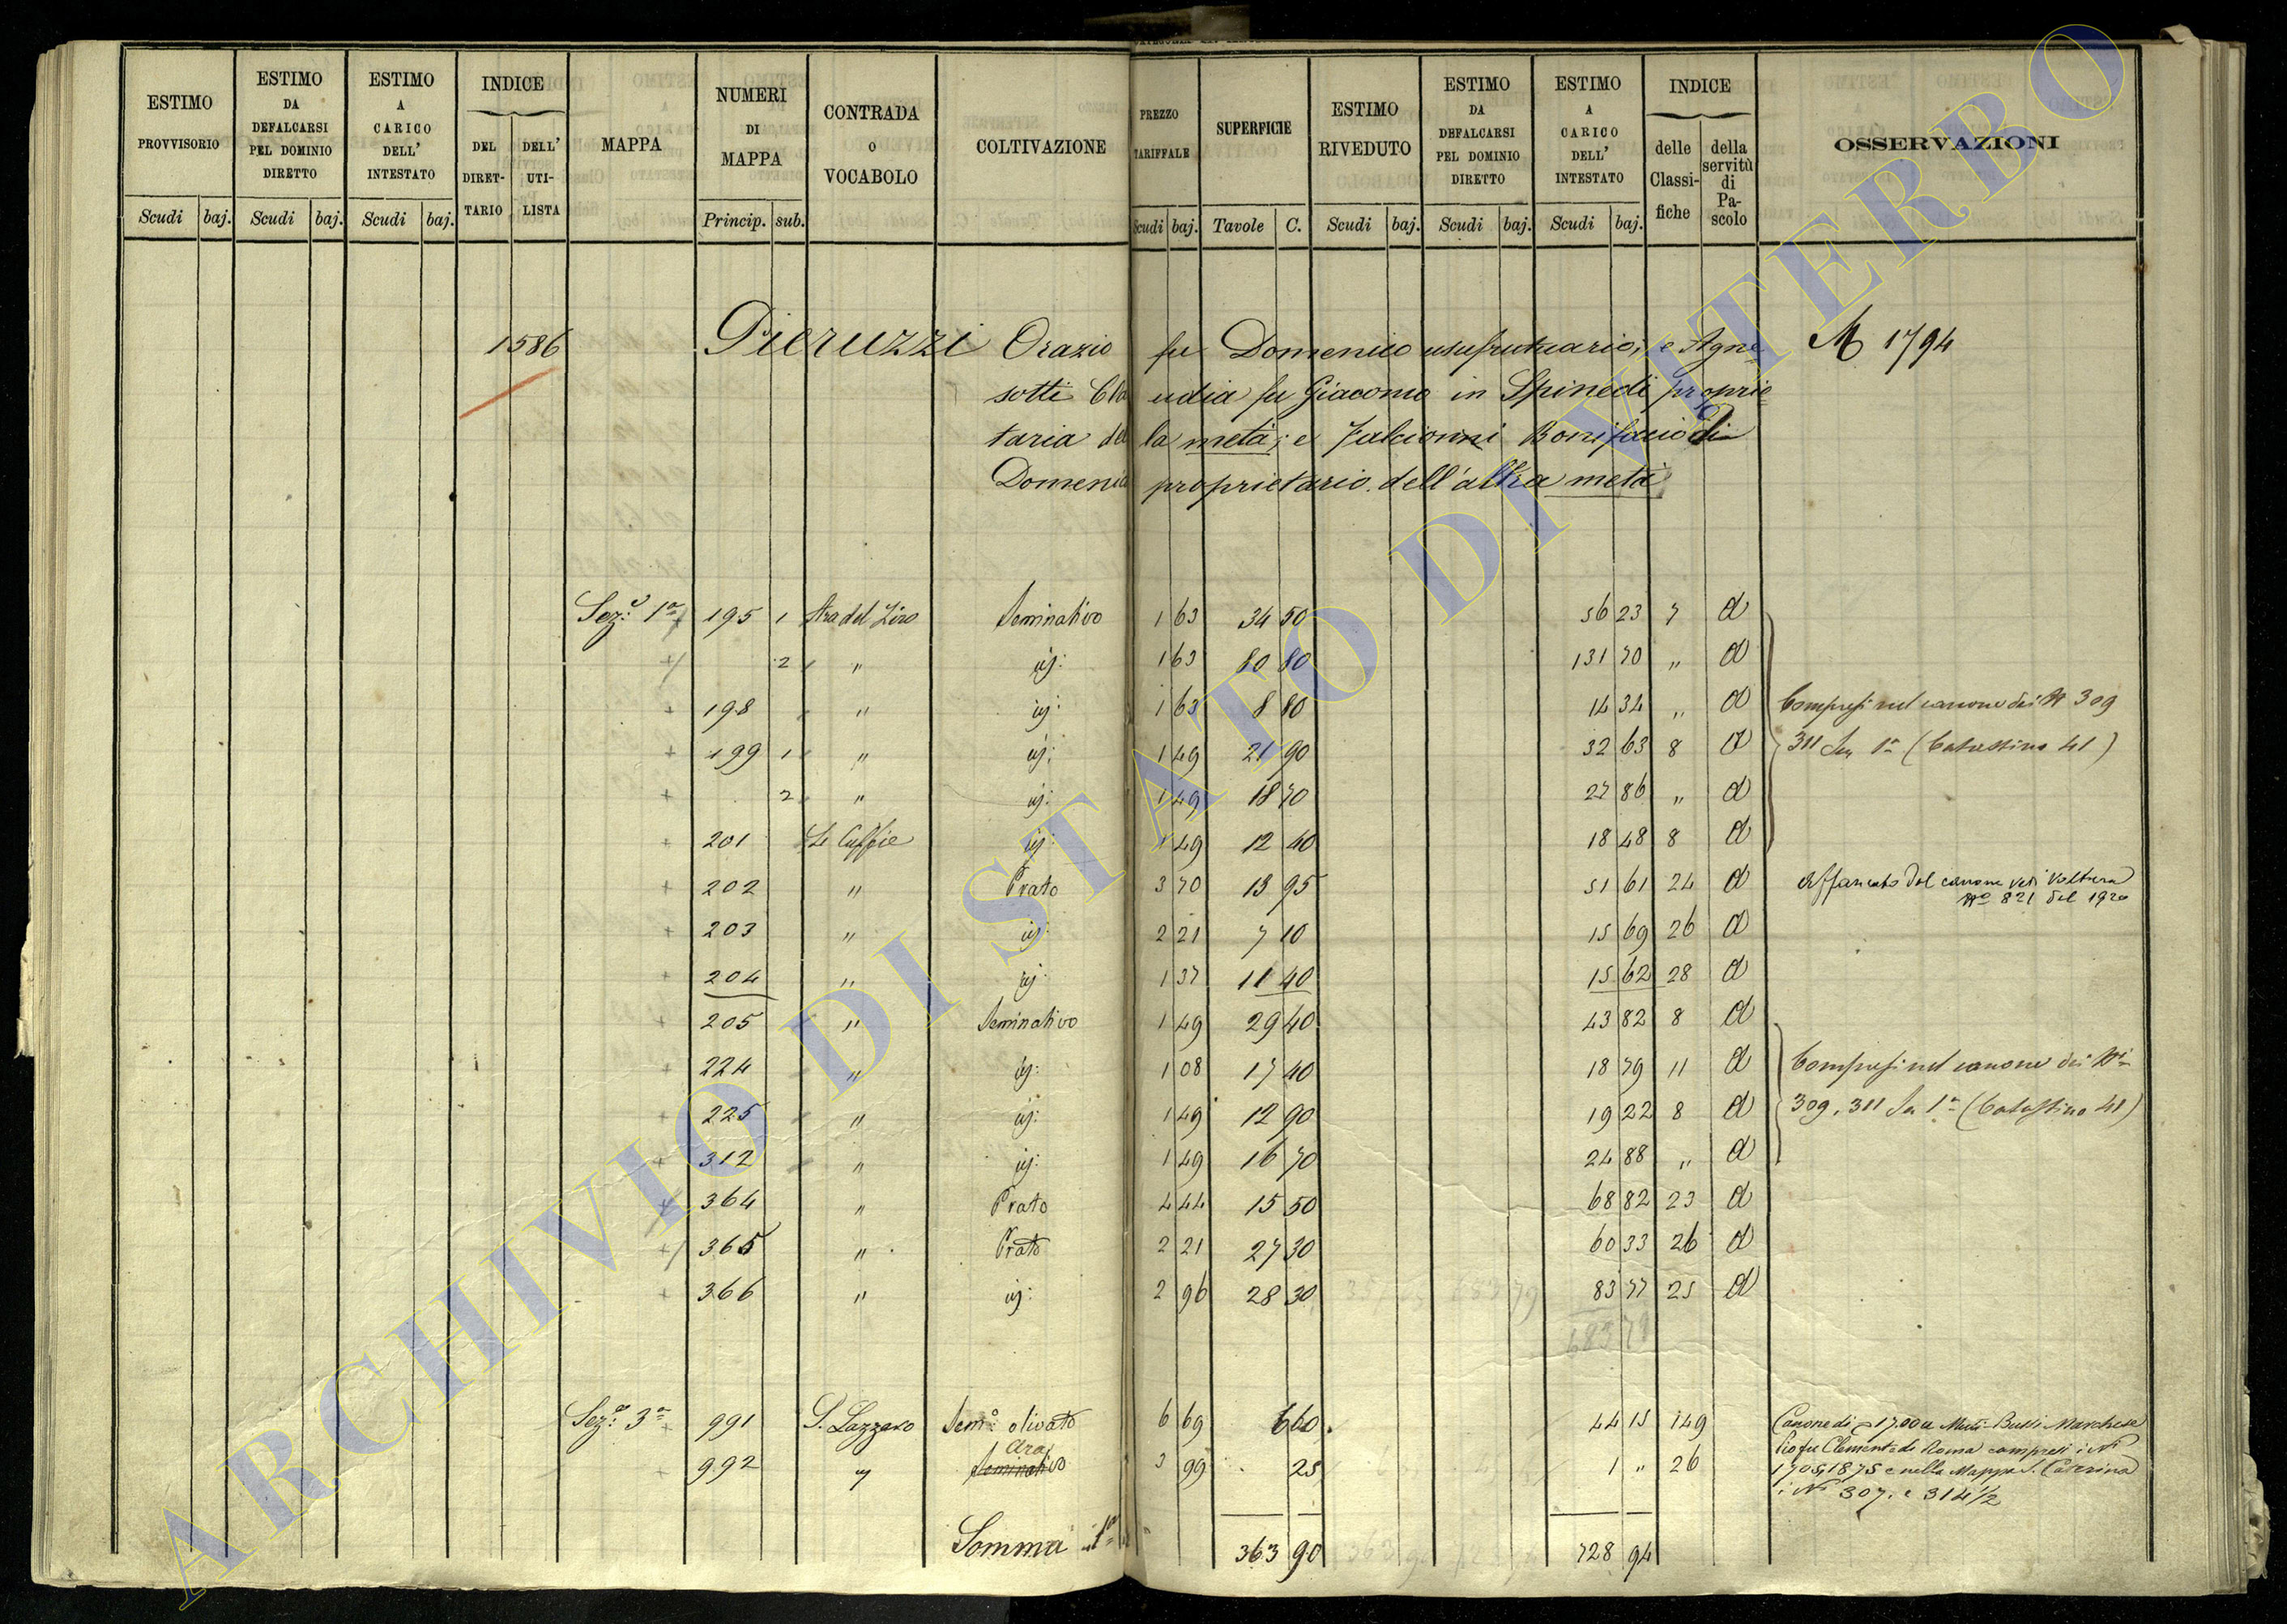 ESTIMO PROVVISORIO
ESTIMO DA DEFALCARSI PEL DOMINIO DIRETTO
ESTIMO A CARICO DELL' INTESTATO
INDICE
DEL DIRET-TARIO
DELL' UTI-LISTA
MAPPA
NUMERI DI MAPPA
CONTRADA o VOCABOLO
COLTIVAZIONE
PREZZO TARIFFALE
SUPERFICIE
ESTIMO RIVEDUTO
ESTIMO DA DEFALCARSI PEL DOMINIO DIRETTO
ESTIMO A CARICO DELL' INTESTATO
INDICE
delle Classi-fiche
della servitù di Pa-scolo
OSSERVAZIONI
Scudi baj. Scudi baj. Scudi baj. Princip. sub. Scudi baj. Tavole C. Scudi baj. Scudi baj. Scudi baj.
1586 Pieruzzi Orazio fu Domenico usufrutuario; e Agne M 1794
sotti Cla udia fu Giacomo in Spinedi proprie
taria del la metà; e Falcionni Bonifacio di
Domenico proprietario dell'altra metà
Sez.e 1a 195 1 Stra del Ziro Seminativo 1 63 34 50 56 23 7 d
2 " id: 1 63 80 80 131 70 " d
198 " id: 1 63 8 80 14 34 " d Compresi nel canone dei N 309
199 1 " id: 1 49 21 90 32 63 8 d 311 Sez 1a (Catastino 41)
2 " id: 1 49 18 70 27 86 " d
201 Le Cuffie id: 1 49 12 40 18 48 8 d
202 " Prato 3 70 13 95 51 61 24 d Affrancato dal canone vedi Voltura
No 821 del 1920
203 " id: 2 21 7 10 15 69 26 d
204 " id: 1 37 11 40 15 62 28 d
205 " Seminativo 1 49 29 40 43 82 8 d
224 " id: 1 08 17 40 18 79 11 d Compresi nel canone dei Ni
225 " id: 1 49 12 90 19 22 8 d 309, 311 Sez 1a (Catastino 41)
312 " id: 1 49 16 70 24 88 " d
364 " Prato 4 44 15 50 68 82 23 d
365 " Prato 2 21 27 30 60 33 26 d
366 " id: 2 96 28 30 83 77 25 d
683 79
Sez.e 3a 991 S. Lazzaro Sem.o olivato 6 69 6 60 44 15 149 Canone di 17.00 a Bussi Marchese
Ara Pio fu Clemente di Roma compresi i Ni
992 " Seminativo 3 99 25 1 " 26 1705, 1875 e nella Mappa S. Caterina
i Ni 307. e 314 1/2
Somma 1a 363 90 728 94
ARCHIVIO DI STATO DI VITERBO